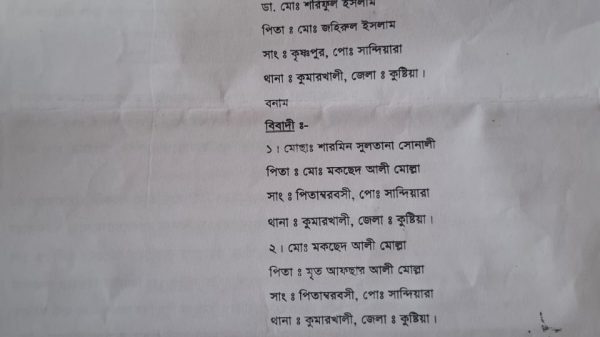 ডা. মোঃ শরিফুল ইসলাম
পিতা ঃ মোঃ জহিরুল ইসলাম
সাং ঃ কৃষ্ণপুর, পোঃ সান্দিয়ারা
থানা ঃ কুমারখালী, জেলা ঃ কুষ্টিয়া ।
বনাম
বিবাদী ঃ-
১ । মোছাঃ শারমিন সুলতানা সোনালী
পিতা ঃ মোঃ মকছেদ আলী মোল্লা
সাং ঃ পিতাম্বরবসী, পোঃ সান্দিয়ারা
থানা ঃ কুমারখালী, জেলা ঃ কুষ্টিয়া ।
২ । মোঃ মকছেদ আলী মোল্লা
পিতা ঃ মৃত আফছার আলী মোল্লা
সাং ঃ পিতাম্বরবসী, পোঃ সান্দিয়ারা
থানা ঃ কুমারখালী, জেলা ঃ কুষ্টিয়া ।